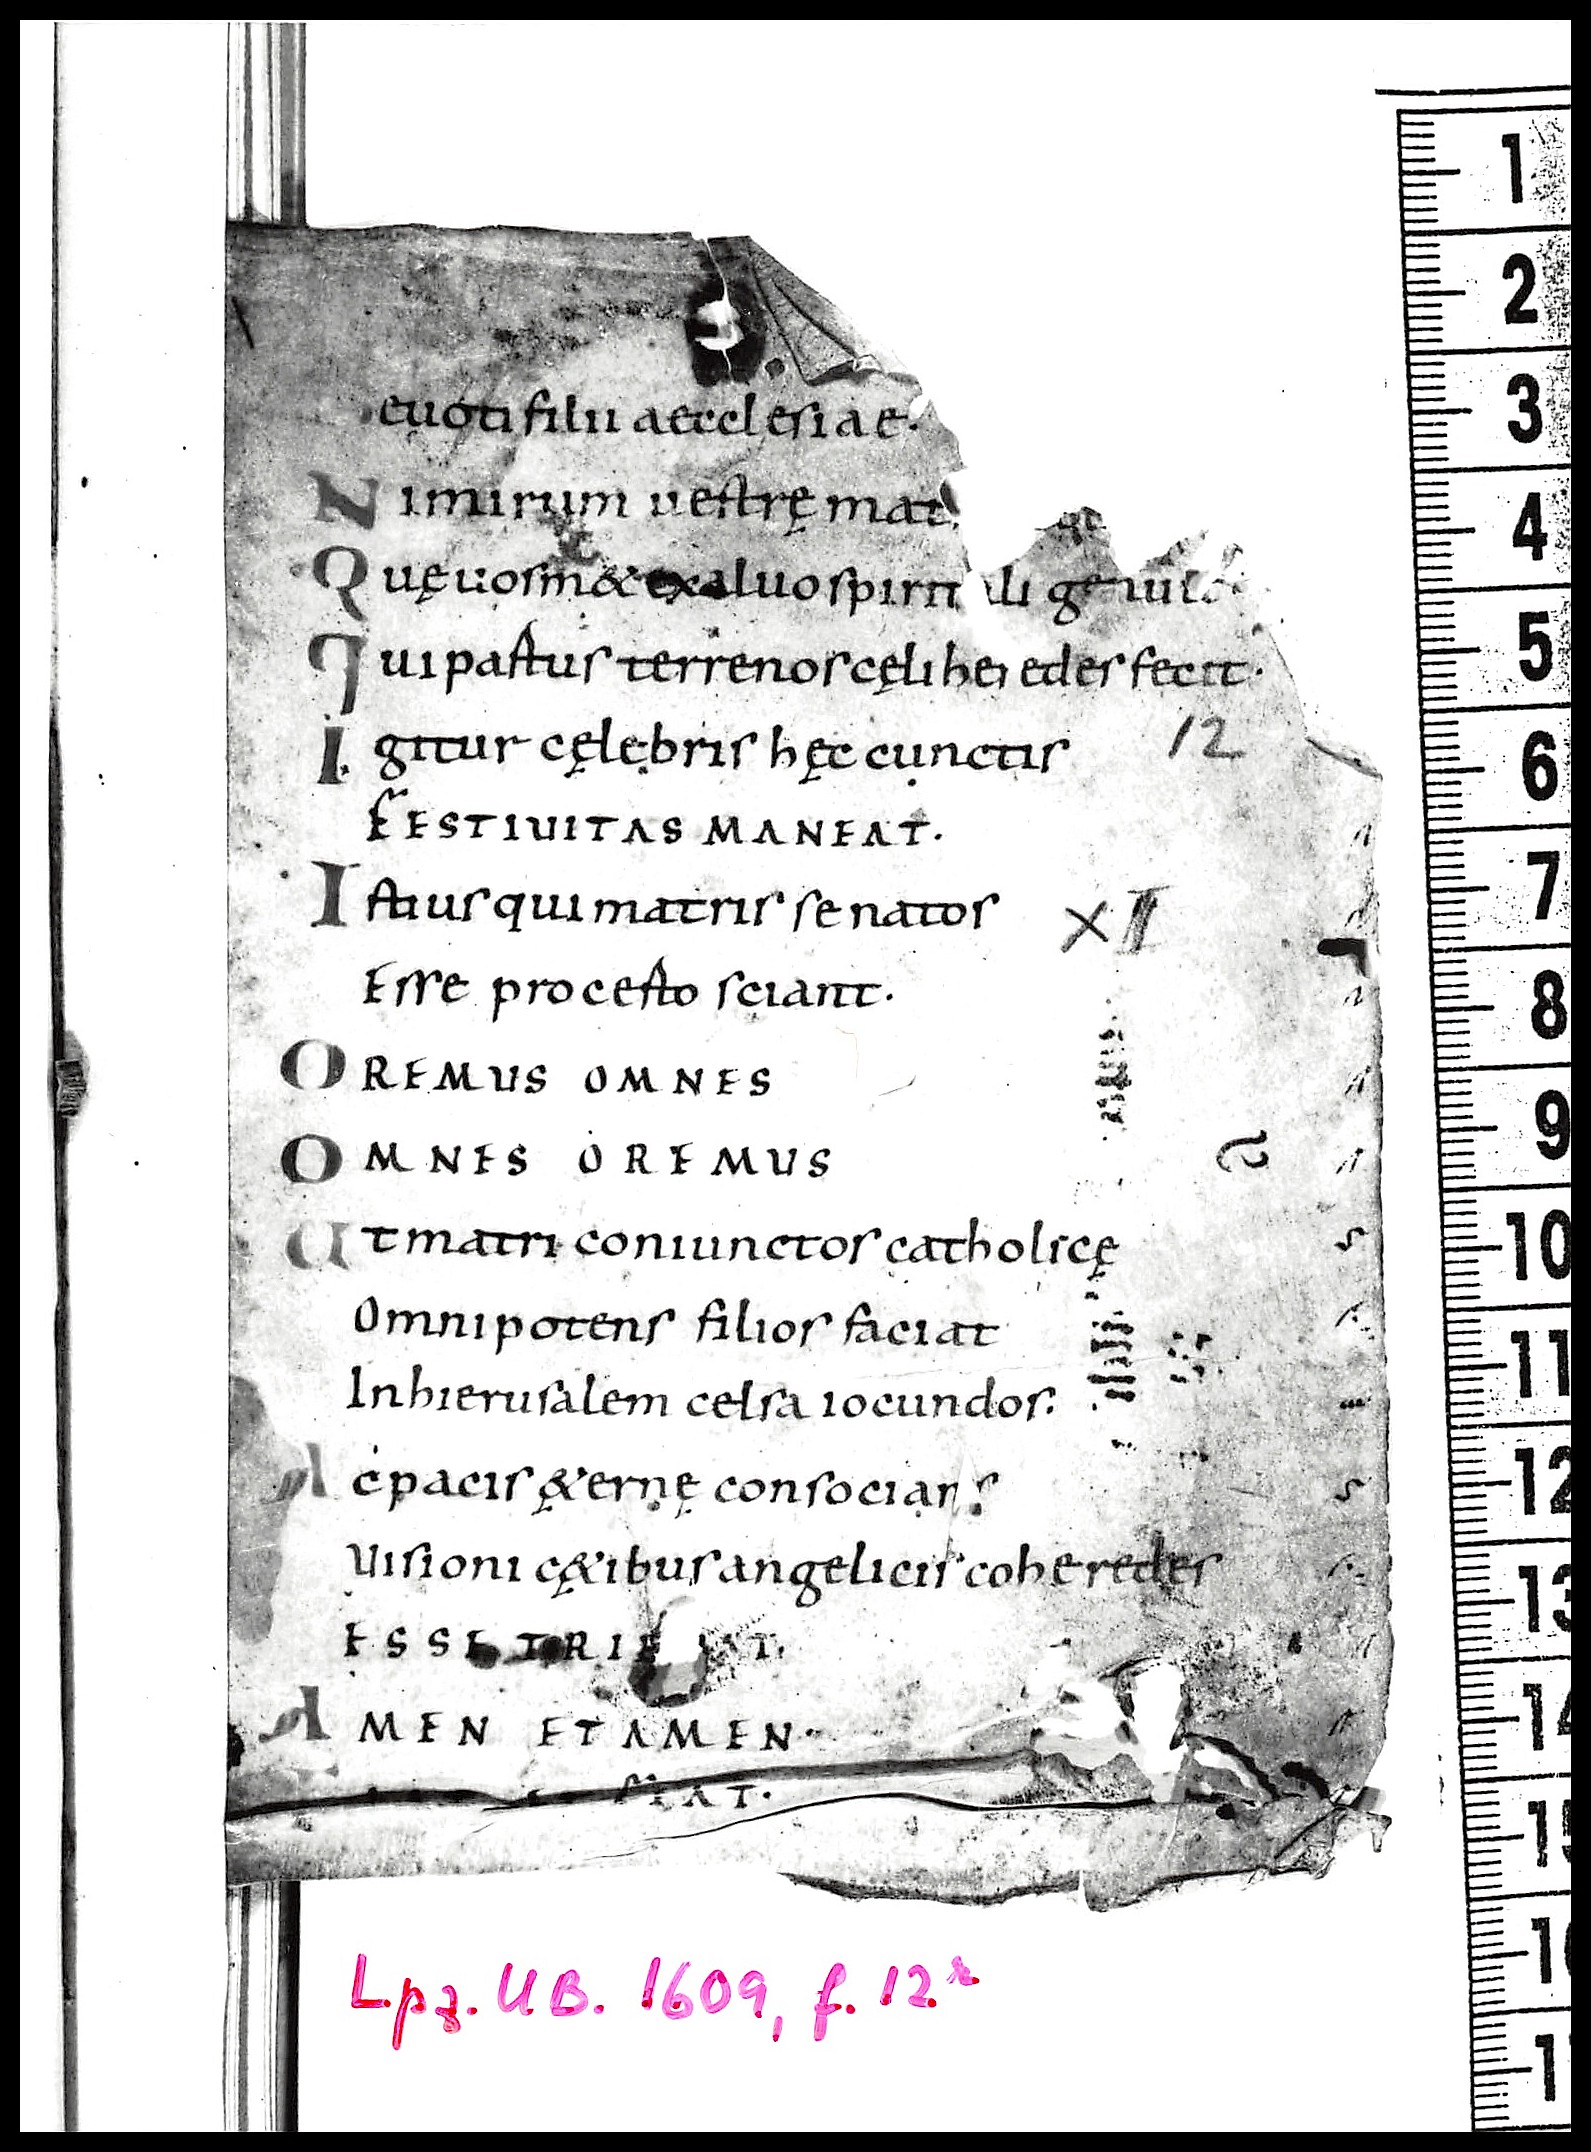 euoti filii aecclesiae.
Nimirum uestrę mat
Quę uos in & ex aluo spiritali genuit
Qui pastus terrenos cęli heredes fecit.
Igitur cęlębris hęc cunctis
12
FESTIUITAS MANEAT.
Istius qui matris se natos
XII
Esse procesto sciant.
OREMUS OMNES
OMNES OREMUS
Ut matri coniunctos catholicę
Omnipotens filios faciat
In hierusalem celsa iocundos.
Ac pacis &ernę consocians
Uisioni cę&ibus angelicis coheredes
ESSE TRI
AMEN ET AMEN.
FIAT.
Lpz. UB. 1609, f. 12r
1
2
3
4
5
6
7
8
9
10
11
12
13
14